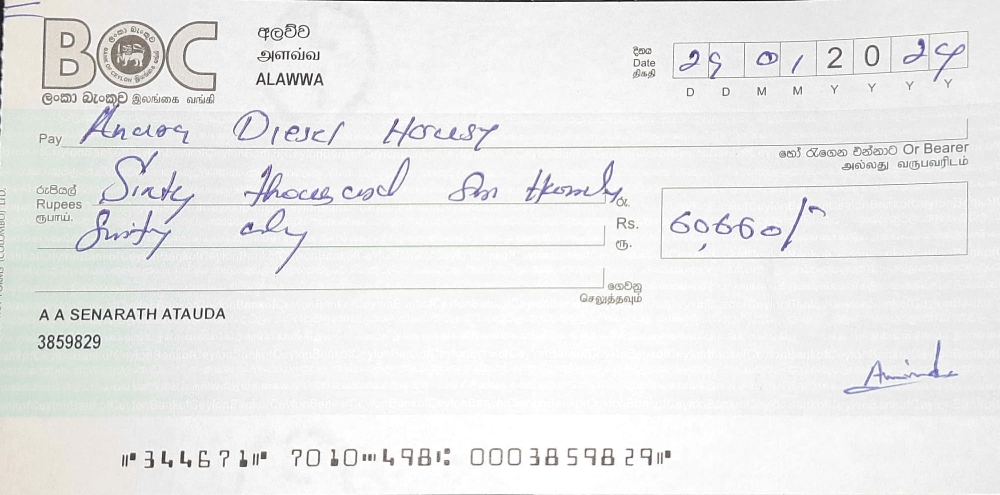 BOC
ලංකා බැංකුව இலங்கை வங்கி
අලව්ව
அளவ்வ
ALAWWA
දිනය
Date
திகதி
29 01 2024
D D M M Y Y Y Y
Pay Diesel House
හෝ රැගෙන එන්නාට Or Bearer
அல்லது வருபவரிடம்
රුපියල්
Rupees
ரூபாய்.
Sixty thousand Six Hundred
Sixty only
රු.
Rs.
ரூ.
60,660/-
ගෙවනු
செலுத்தவும்
A A SENARATH ATAUDA
3859829
344671 7010 498 0003859829